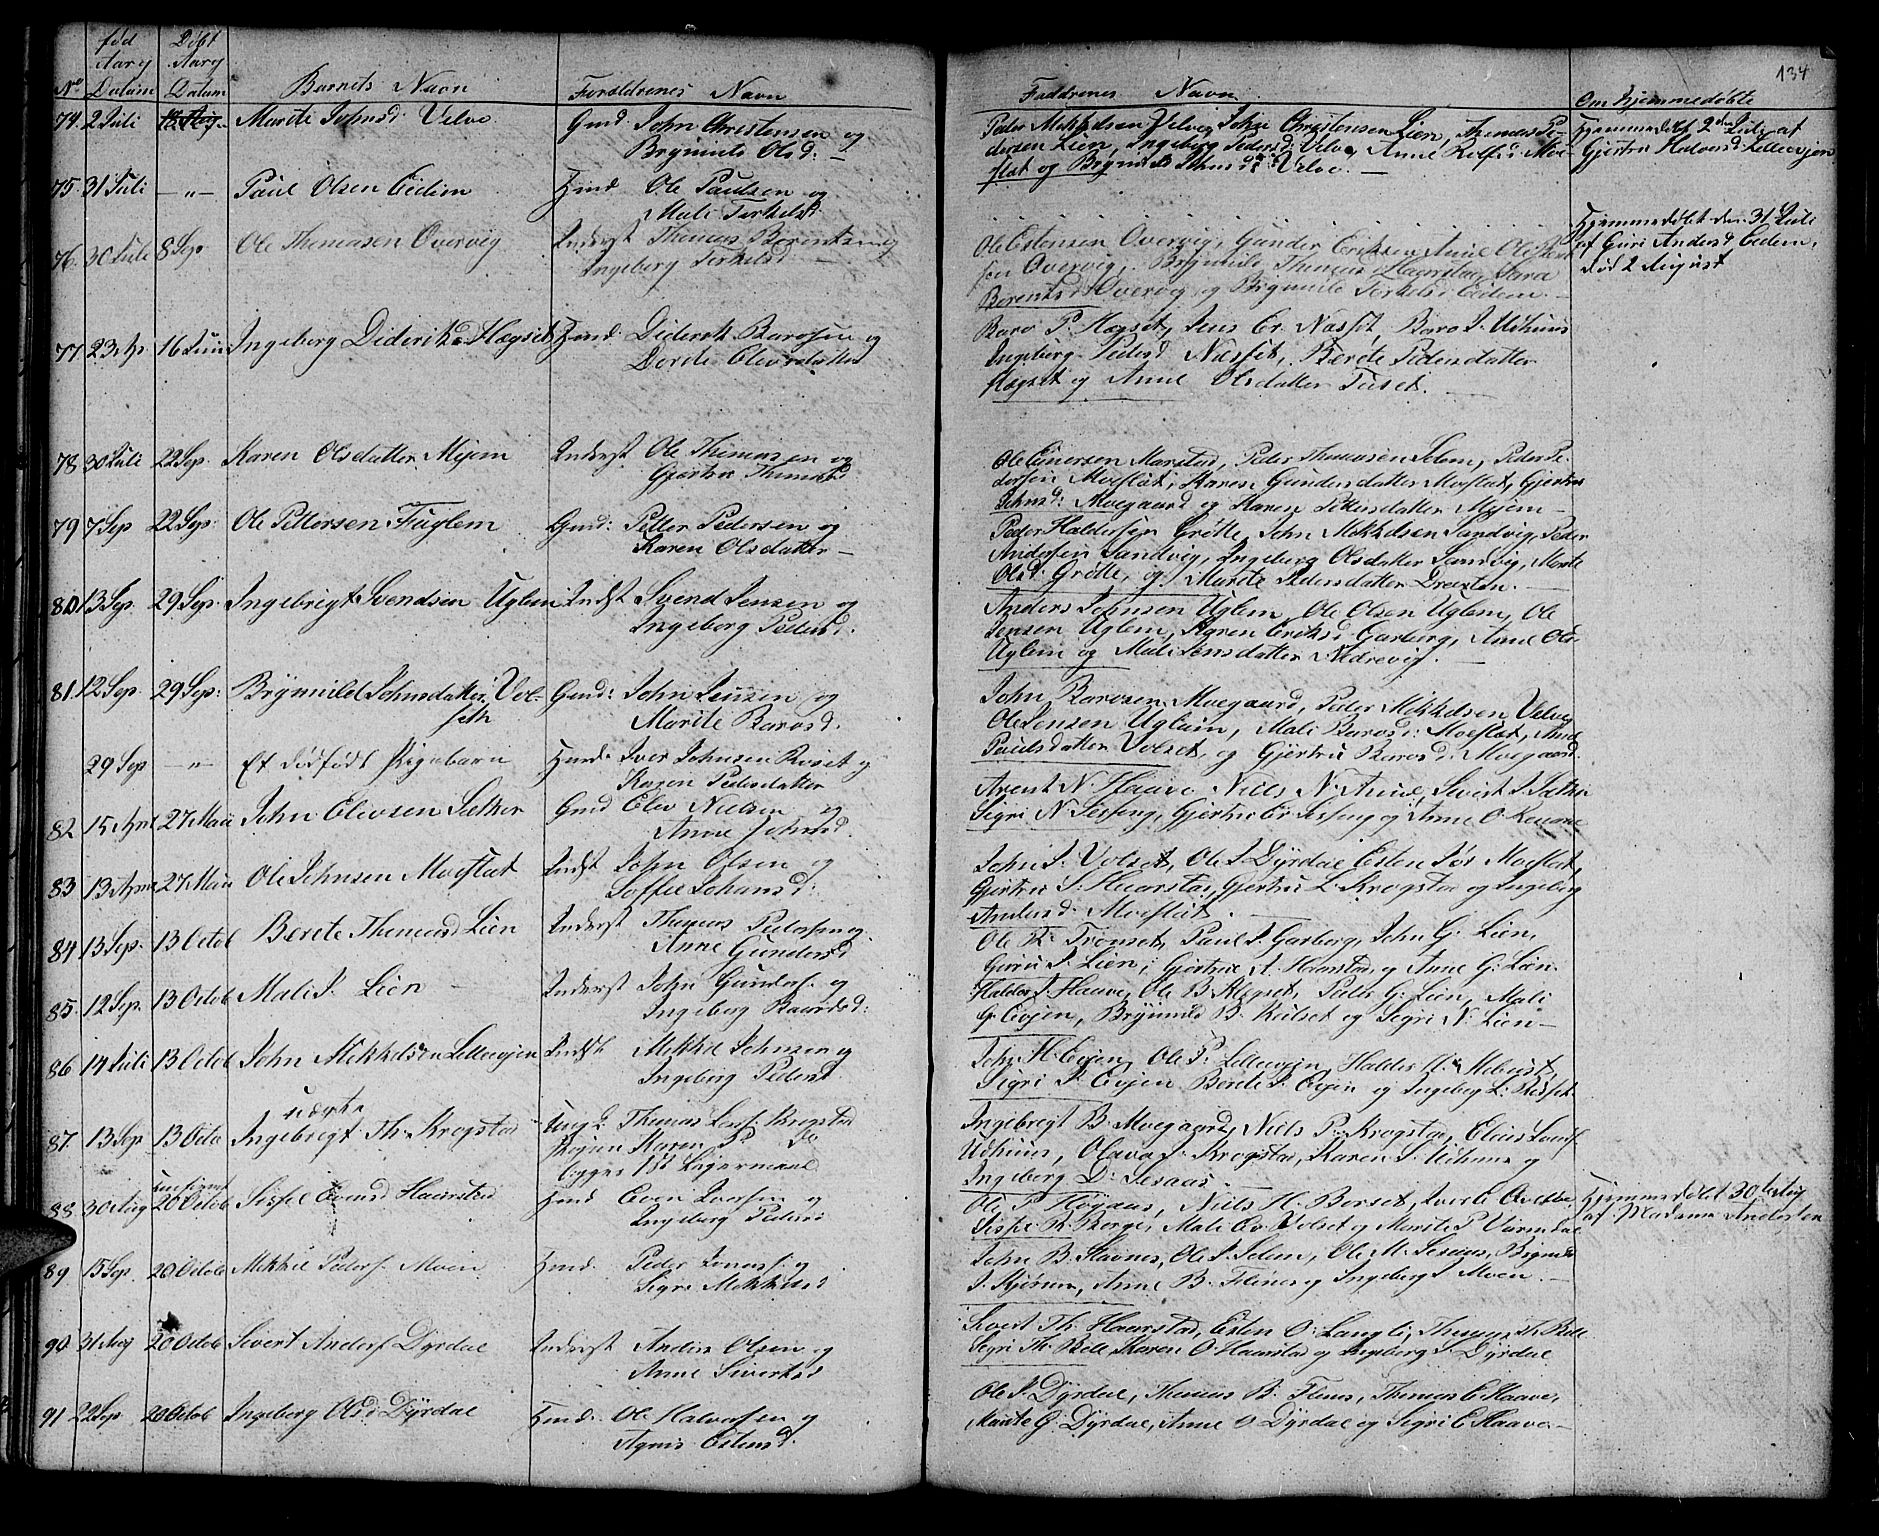 134
No
fød Aar og Datum
Døbt Aar og Datum
Barnets Navn
Forældrenes Navn
Faddrenes Navn
Om hjemmedøbte
74. 2 Juli Marite Johnsd Velve Gmd. John Christensen og
Brynnild Olsd: —
Peder Mikkelsen Velve, John Christensen Lien, Thomas Pe-
dersen Lien, Ingeborg Pedersd: Velve, Anne Rolfsd: Moe-
slæt og Brynnild Johnsd: Velve. —
Hjemmedøbt 2den Juli af
Gjertru Halvorsd: Lillevjen
75. 31 Juli —„— Paul Olsen Eidem Hmd Ole Paulsen og
Mali Torkelsd
Hjemmedøbt den 31 Juli
af Guri Andersd Eidem,
død 2 August
76. 30 Juli 8 Sep Ole Thomasen Overvig Inderst Thomas Berentsen og
Ingeborg Torkelsd —
Ole Estensen Overvig, Gunder Eriksen
Overvig, Brynnild Thomas Haarstad, Sara
Berentsd Overvig og Brynnild Torkelsd Eidem. —
77. 23 Ap. 16 Juni Ingeborg Dideriksd Hægset Hmd. Diderik Baarsen og
Dorde Elevsdatter
Baro P. Hægset, Jens Er. Næsset, Baro J. Udhuus
Ingeborg Pedersd Næsset, Berete Pedersdatter
Hægset og Anne Olsdatter Tuset.
78. 30 Juli 22 Sep. Karen Olsdatter Mijem Inderst Ole Thomasen og
Gjertru Thomasd
Ole Einersen Marstad, Peder Thomasen Selem, Peder Pe-
dersen Moeslæt, Karen Gundersdatter Moeslæt, Gjertru
Johnsd: Moegaard og Karen Pettersdatter Mijem —
79. 7 Sep 22 Sep: Ole Pettersen Fuglem Gmd: Petter Pedersen og
Karen Olsdatter —
Peder Haldorsen Grøtte, John Mikkelsen Sandvig, Peder
Andersen Sandvig, Ingeborg Olsdatter Sandvig, Marite
Olsd: Grøtte, og Marite Pedersdatter Draxten. —
80. 13 Sep. 29 Sep. Ingebrigt Svendsen Uglem Indst Svend Jensen og
Ingeborg Pedersd.
Anders Johnsen Uglem, Ole Olsen Uglem, Ole
Jensen Uglem, Karen Eriksd Garberg, Anne Ols-
Uglem og Mali Jensdatter Nedrevig. —
81. 12 Sep. 29 Sep: Brynnild Johnsdatter Vol-
seth Gmd: John Jensen og
Marite Barosd.
John Barosen Moegaard, Peder Mikkelsen Velve,
Ole Jensen Uglem, Mali Barosd: Moeslæt, Anne
Paulsdatter Volset, og Gjertru Barosd: Moegaard.
29 Sep —„— Et dødfødt Pigebarn Hmd. Iver Johnsen Roset og
Karen Pedersdatter
82. 15 Apr 27 Mai John Elevsen Sætker Gmd Elev Nielsen og
Anne Johnsd.
Arent N. Haave Niels N. Sivert J. Sætker
Sigri N. Sesseng, Gjertru Er Sesseng og Anne O.
83. 13 Apr 27 Mai Ole Johnsen Moeslæt Indst John Olsen og
Soffie Johansd:
John J. Volset, Ole J. Dyrdal, Esten Moeslæt,
Gjertru S. Haarstad, Gjertru L. Krogstad og Ingeborg
Andersd. Moeslæt.
84. 13 Sep. 13 Octob Berete Thomasd Lien Inderst Thomas Pedersen og
Anne Gundersd
Ole K. Trønset, Paul J. Garberg, John G. Lien,
Guru P. Lien, Gjertrue A. Haarstad, og Anne G. Lien.
85. 12 Sep. 13 Octob Mali J. Lien Inderst John Gunders. og
Ingeborg Baardsd:
Haldor J. Haave, Ole B. Hegset, Peder G. Lien, Mali
G. Evjen, Brynnild B. Kulset og Sigri N. Lien —
86. 14 Juli 13 Octob John Mikkelsen Lillevjen Indst. Mikkel Johnsen og
Ingeborg Pedersd
John H. Evjen, Ole P. Lillevjen, Haldor Mebust,
Sigri J. Evjen Berete J. Evjen og Ingeborg L. Rosset.
uægte
87. 13 Sep 13 Octo Ingebrigt Th. Krogstad Ungk. Thomas Krogstad
Pigen Karen P. do
begges 1ste Lejermaal
Ingebrigt B. Moegaard, Niels P. Krogstad,
Udhuus, Olava Krogstad, Karen J. Udhuus og
Ingeborg D. Sesaas.
88. 30 Aug 20 Octob Sissel Evensd Haarstad Hmd Even Iversen og
Ingeborg Pedersd
Ole P. Høgaas, Niels H. Berset,
Sissel K. Berge, Mali Er. Volset og Marite P. Varmdal
Hjemmedøbt 30te Aug
af Madame Andersen
89 15 Sep. 20 Octob Mikkel Peders. Moen Hmd. Peder Jonas. og
Sigri Mikkelsd
John B. Stavnes, Ole J. Selem, Ole M. Sesaas, Brynnild
J. Kjøsnes, Anne B. Flenes og Ingeborg J. Moen. —
90. 31 Aug 20 Octob Sivert Anders. Dyrdal Inderst Anders Olsen og
Anne Sivertsd
Sivert Th. Haarstad, Esten O. Langli, Thomas Th. Bell
Sigri Th. Bell, Karen O. Haarstad og Ingeborg J. Dyrdal
91 22 Sep 20 Octob Ingeborg Olsd Dyrdal Hmd. Ole Halvorsen og
Agnis Estensd.
Ole J. Dyrdal, Thomas B. Flenes, Thomas E. Haave,
Marite G. Dyrdal, Anne O Dyrdal og Sigri E. Haave. —